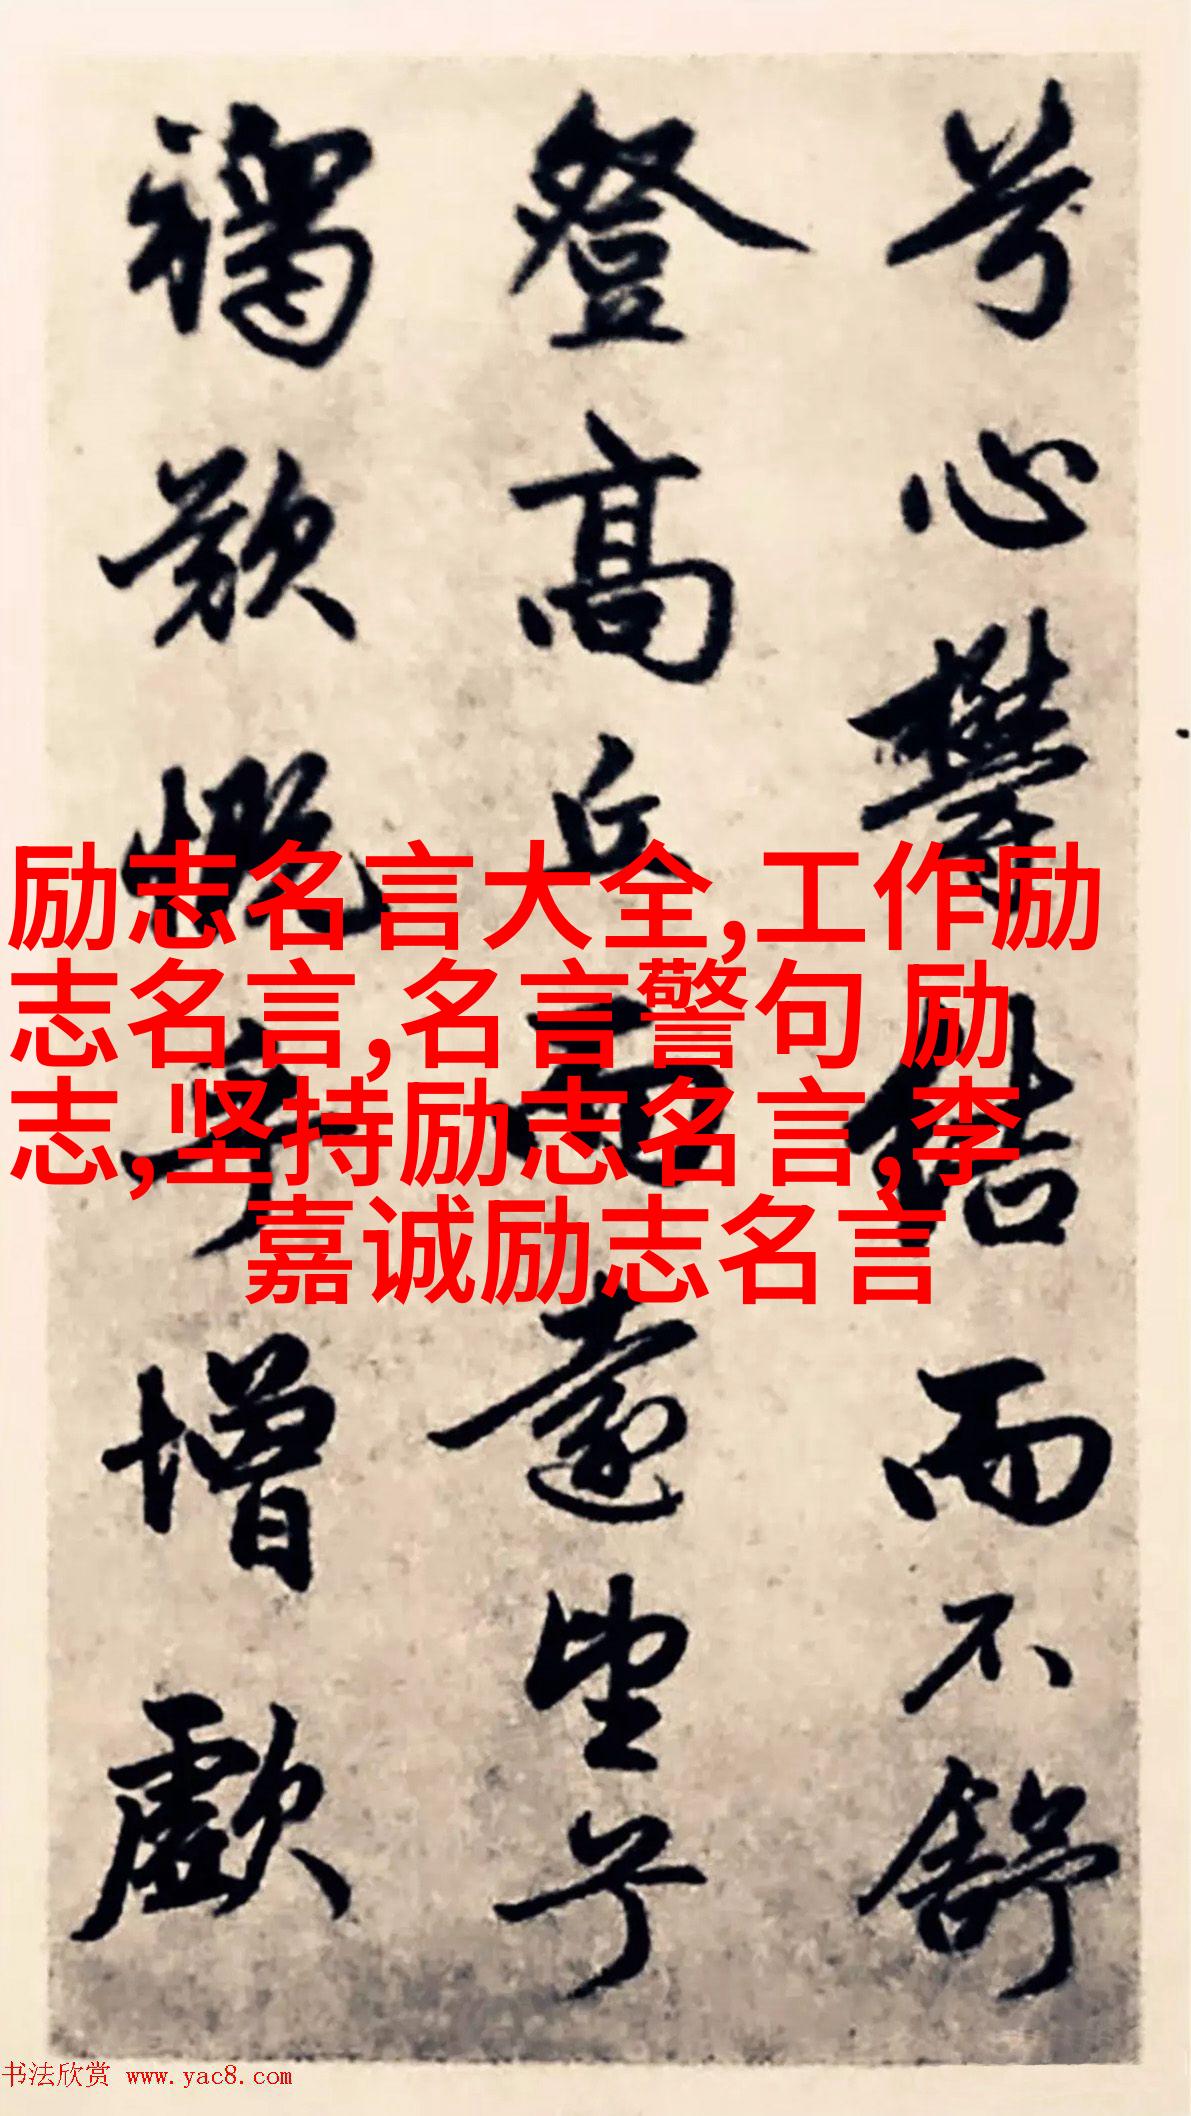 兮心鬱結而不舒
登高丘而遠望兮
慨兮增歔
励志名言大全,工作励
志名言,名言警句 励
志,坚持励志名言,李
嘉诚励志名言
书法欣赏 www.yac8.com